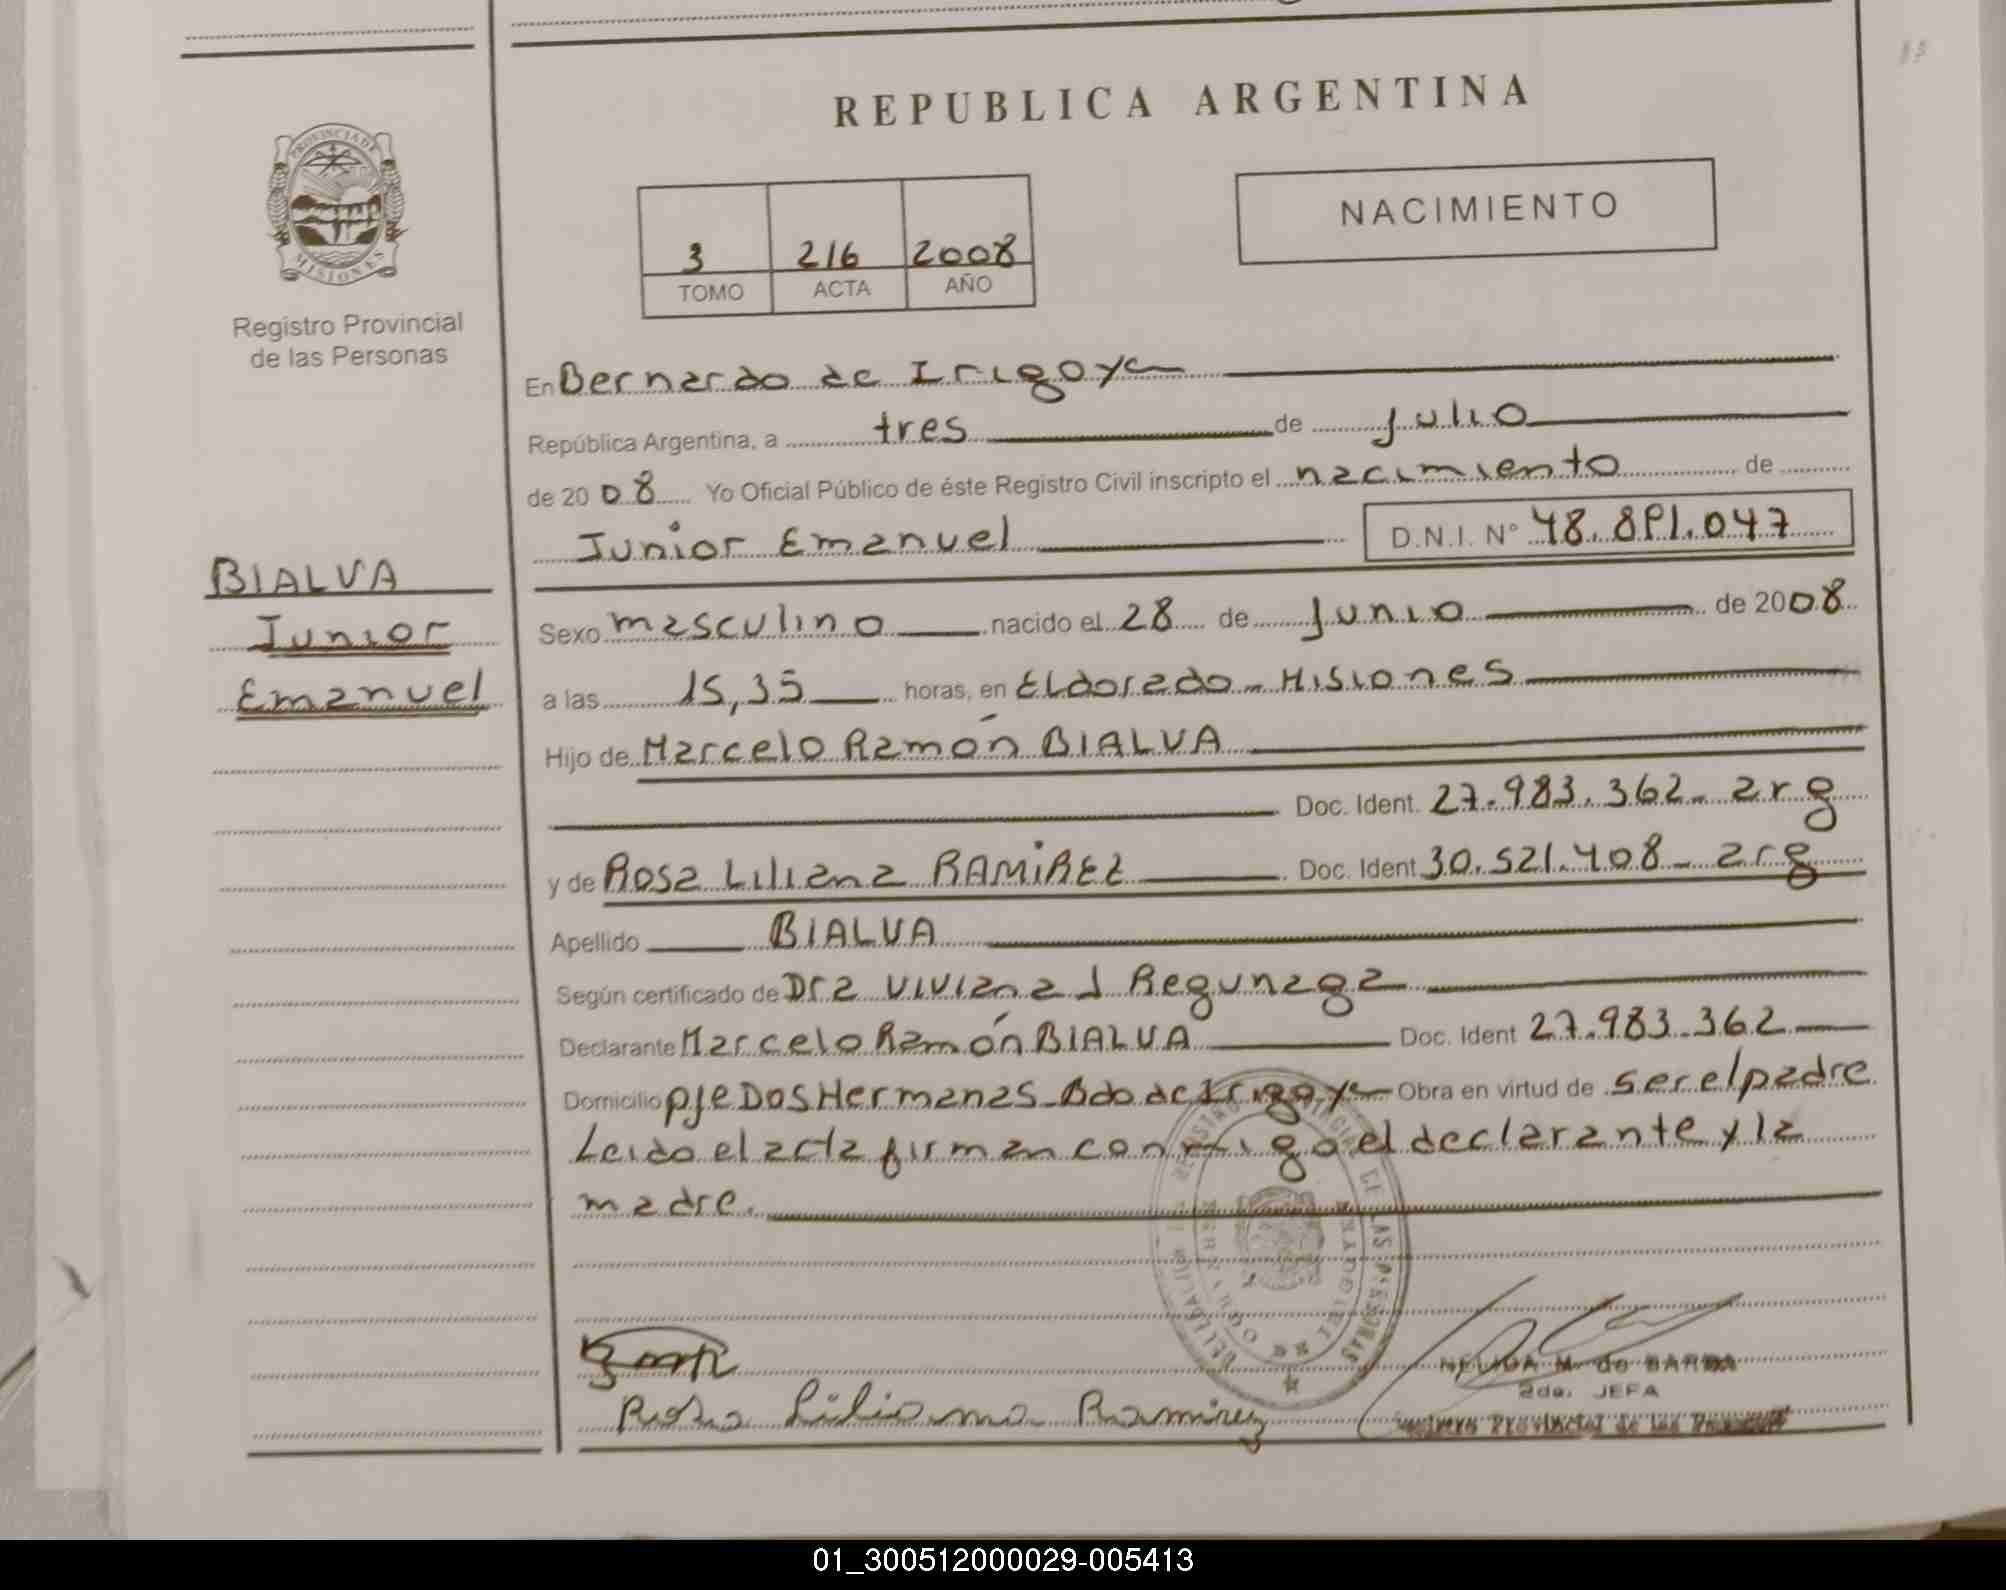 REPUBLICA ARGENTINA
NACIMIENTO
3 216 2008
TOMO ACTA AÑO
PROVINCIA DE
MISIONES
Registro Provincial
de las Personas
BIALVA
Junior
Emanuel
En Bernardo de Irigoyen
República Argentina, a tres de julio
de 2008 Yo Oficial Público de éste Registro Civil inscripto el nacimiento de
Junior Emanuel D.N.I. N° 48.891.047
Sexo masculino nacido el 28 de junio de 2008
a las 15,35 horas, en Eldorado - Misiones
Hijo de Marcelo Ramón BIALVA
Doc. Ident. 27.983.362 - arg
y de Rosa Liliana RAMIREZ Doc. Ident. 30.521.408 - arg
Apellido BIALVA
Según certificado de Dra Viviana J Regunaga
Declarante Marcelo Ramón BIALVA Doc. Ident 27.983.362
Domicilio pje Dos Hermanas - Bdo de Irigoyen Obra en virtud de ser el padre
Leido el acta firman conmigo el declarante y la
madre.
Rosa Liliana Ramirez
NELIDA M. de BARDA
2da. JEFA
Registro Provincial de las Personas
01_300512000029-005413